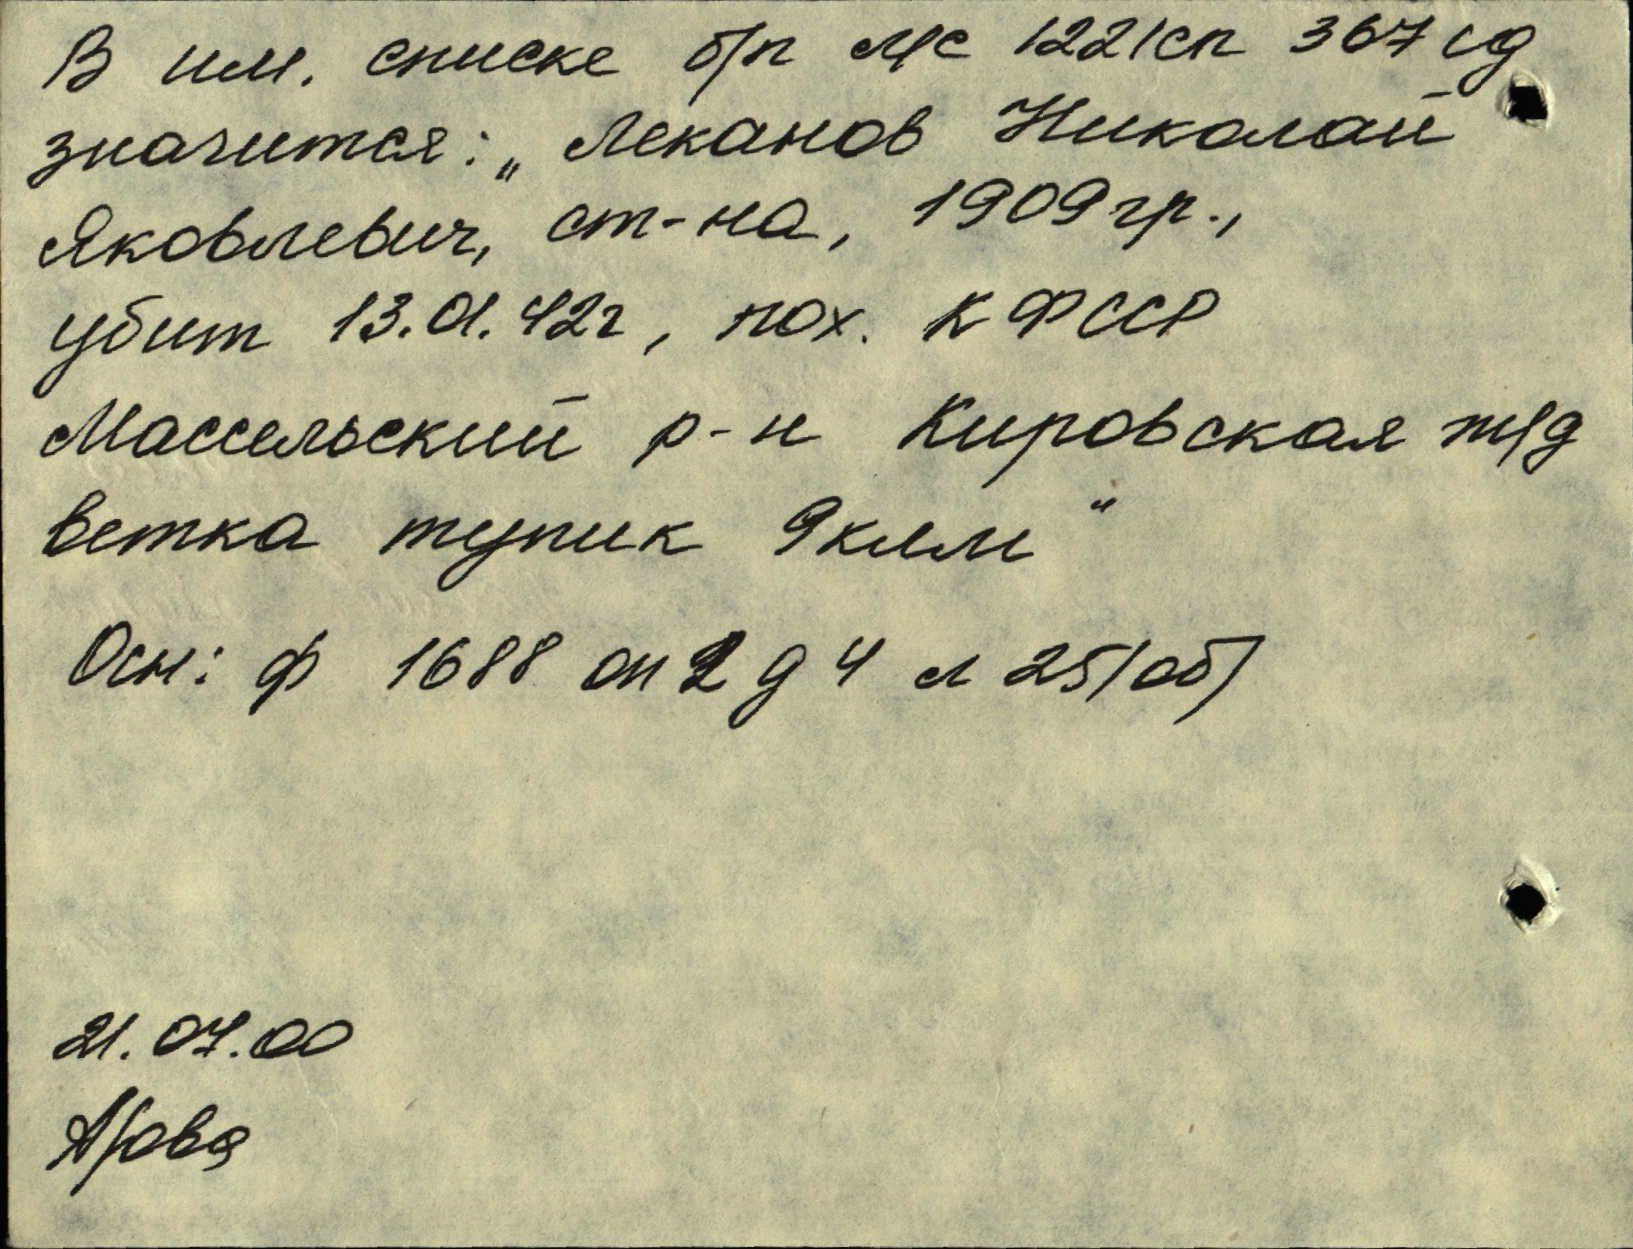 В им. списке б/п л/с 1221сп 367 сд
значится: „Леканов Николай
Яковлевич, ст-на, 1909 гр.,
убит 13.01.42г, пох. КФССР
Массельский р-н Кировская ж/д
ветка тупик 9 клм"
Осн: ф 1688 оп 2 д 4 л 25/об/
21.07.00